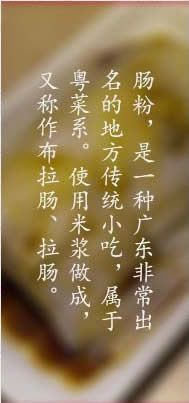 肠粉，是一种广东非常出
名的地方传统小吃，属于
粤菜系。使用米浆做成，
又称作布拉肠、拉肠。